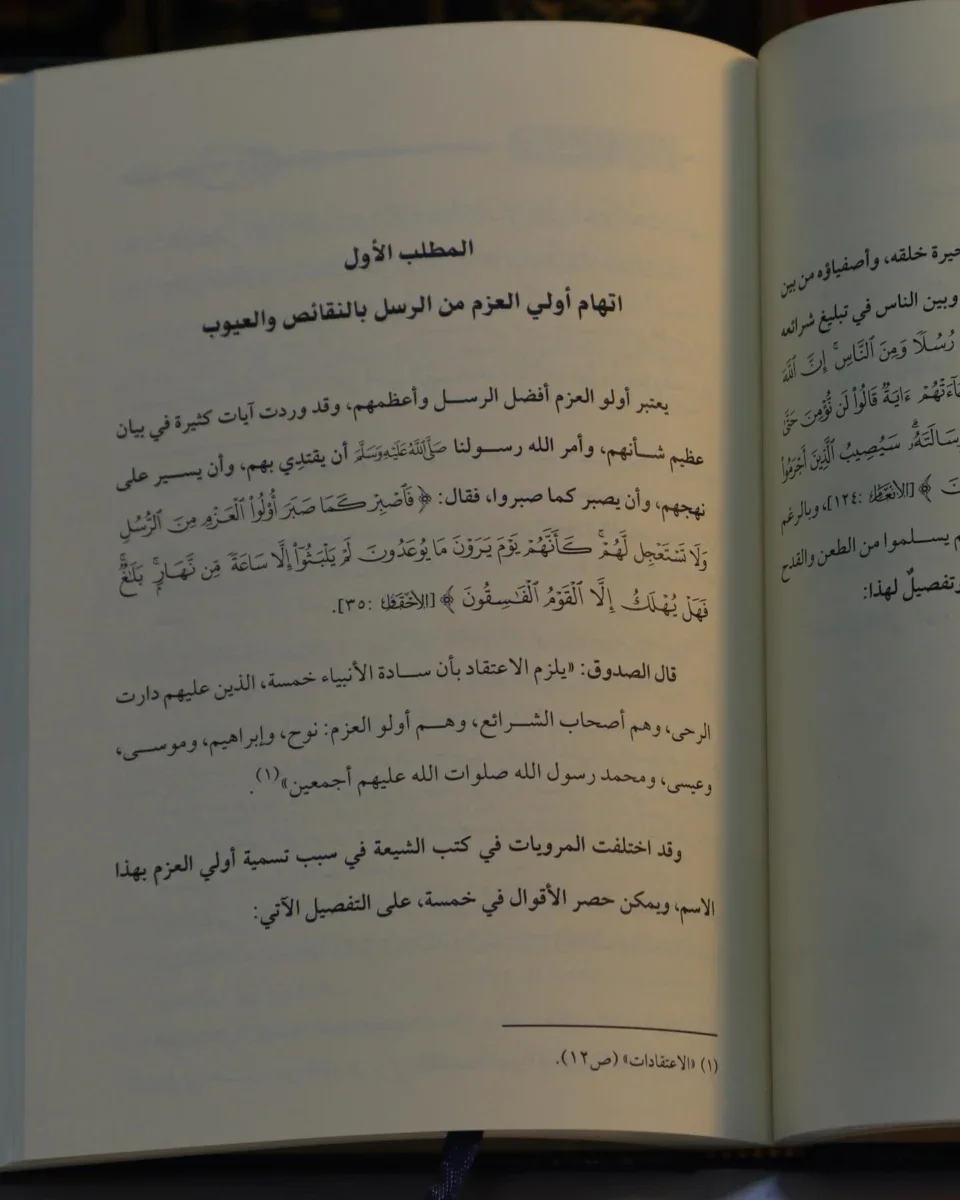 خيرة خلقه، وأصفياؤه من بين
وبين الناس في تبليغ شرائعه
رُسُلًا وَمِنَ ٱلنَّاسِ ۚ إِنَّ ٱللَّهَ
ءَايَةٌ قَالُوا۟ لَن نُّؤْمِنَ حَتَّىٰ
سَيُصِيبُ ٱلَّذِينَ أَجْرَمُوا۟
﴾ [الأنعام: ١٢٤]، وبالرغم
يسلموا من الطعن والقدح
وتفصيلٌ لهذا:
المطلب الأول
اتهام أولي العزم من الرسل بالنقائص والعيوب
يعتبر أولو العزم أفضل الرسل وأعظمهم، وقد وردت آيات كثيرة في بيان
عظيم شأنهم، وأمر الله رسولنا ﷺ أن يقتدِي بهم، وأن يسير على
نهجهم، وأن يصبر كما صبروا، فقال: ﴿ فَٱصْبِرْ كَمَا صَبَرَ أُو۟لُوا۟ ٱلْعَزْمِ مِنَ ٱلرُّسُلِ
وَلَا تَسْتَعْجِل لَّهُمْ ۚ كَأَنَّهُمْ يَوْمَ يَرَوْنَ مَا يُوعَدُونَ لَمْ يَلْبَثُوٓا۟ إِلَّا سَاعَةً مِّن نَّهَارٍ ۚ بَلَٰغٌ ۚ
فَهَلْ يُهْلَكُ إِلَّا ٱلْقَوْمُ ٱلْفَٰسِقُونَ ﴾ [الأحقاف: ٣٥].
قال الصدوق: «يلزم الاعتقاد بأن سادة الأنبياء خمسة، الذين عليهم دارت
الرحى، وهم أصحاب الشرائع، وهم أولو العزم: نوح، وإبراهيم، وموسى،
وعيسى، ومحمد رسول الله صلوات الله عليهم أجمعين»(١).
وقد اختلفت المرويات في كتب الشيعة في سبب تسمية أولي العزم بهذا
الاسم، ويمكن حصر الأقوال في خمسة، على التفصيل الآتي:
(١) «الاعتقادات» (ص١٢).